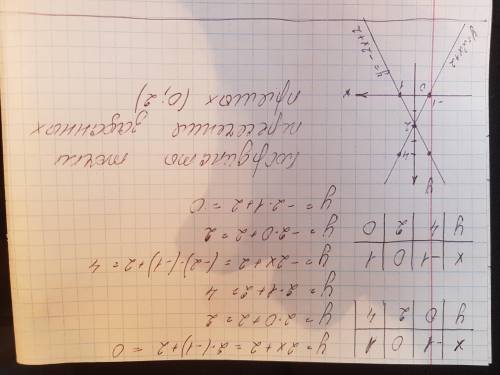 x | -1 | 0 | 1
y | 0 | 2 | 4
y = 2x+2 = 2·(-1)+2 = 0
y = 2·0+2 = 2
y = 2·1+2 = 4
x | -1 | 0 | 1
y | 4 | 2 | 0
y = -2x+2 = (-2)·(-1)+2 = 4
y = -2·0+2 = 2
y = -2·1+2 = 0
y
4
2
-1 0 1 x
y=2x+2
y=-2x+2
точки
пересечения заданных
прямых (0;2)